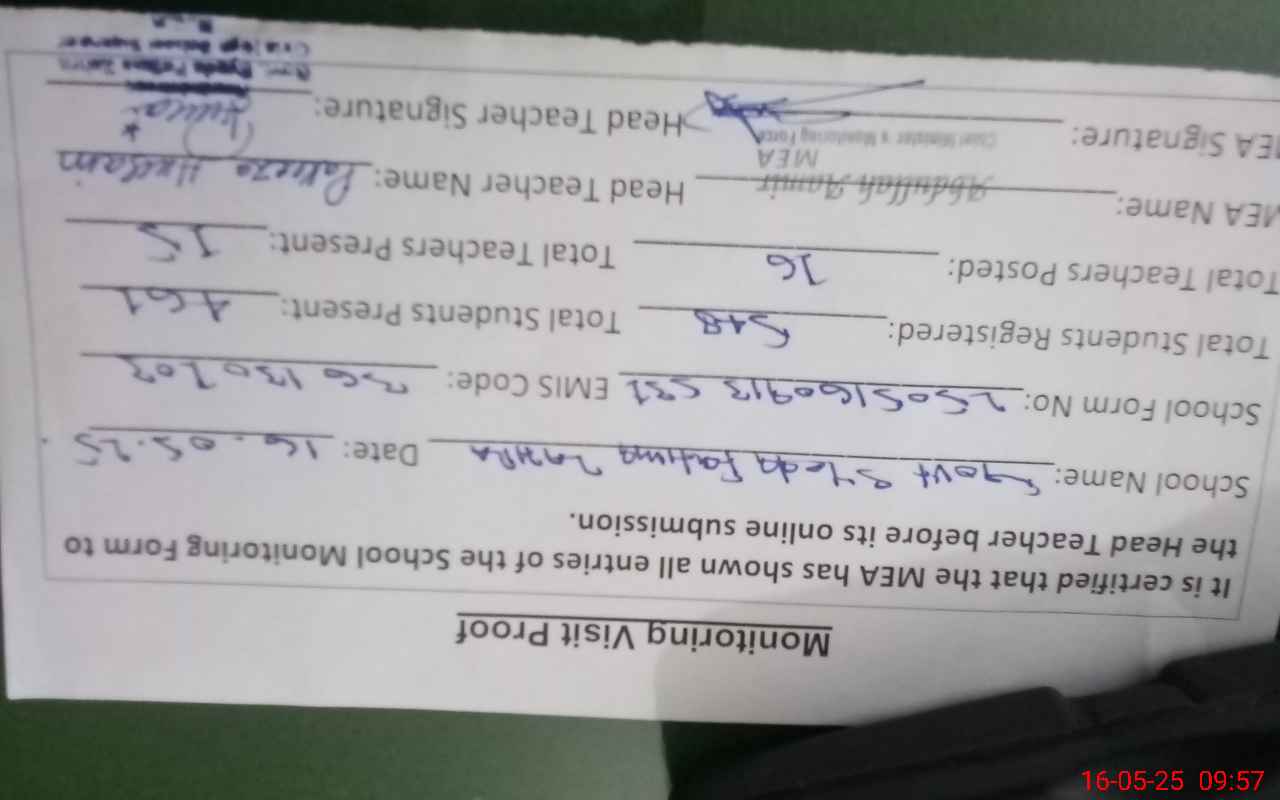 Monitoring Visit Proof
It is certified that the MEA has shown all entries of the School Monitoring Form to
the Head Teacher before its online submission.
School Name: Govt Syeda Fatima ZAHRA Date: 16.05.25
School Form No: 2505160913 531 EMIS Code: 36130703
Total Students Registered: 548 Total Students Present: 461
Total Teachers Posted: 16 Total Teachers Present: 15
MEA Name: Abdullah Aamir Head Teacher Name: Pakeeza Hussain
MEA
Chief Minister's Monitoring Force
MEA Signature: Head Teacher Signature:
16-05-25 09:57